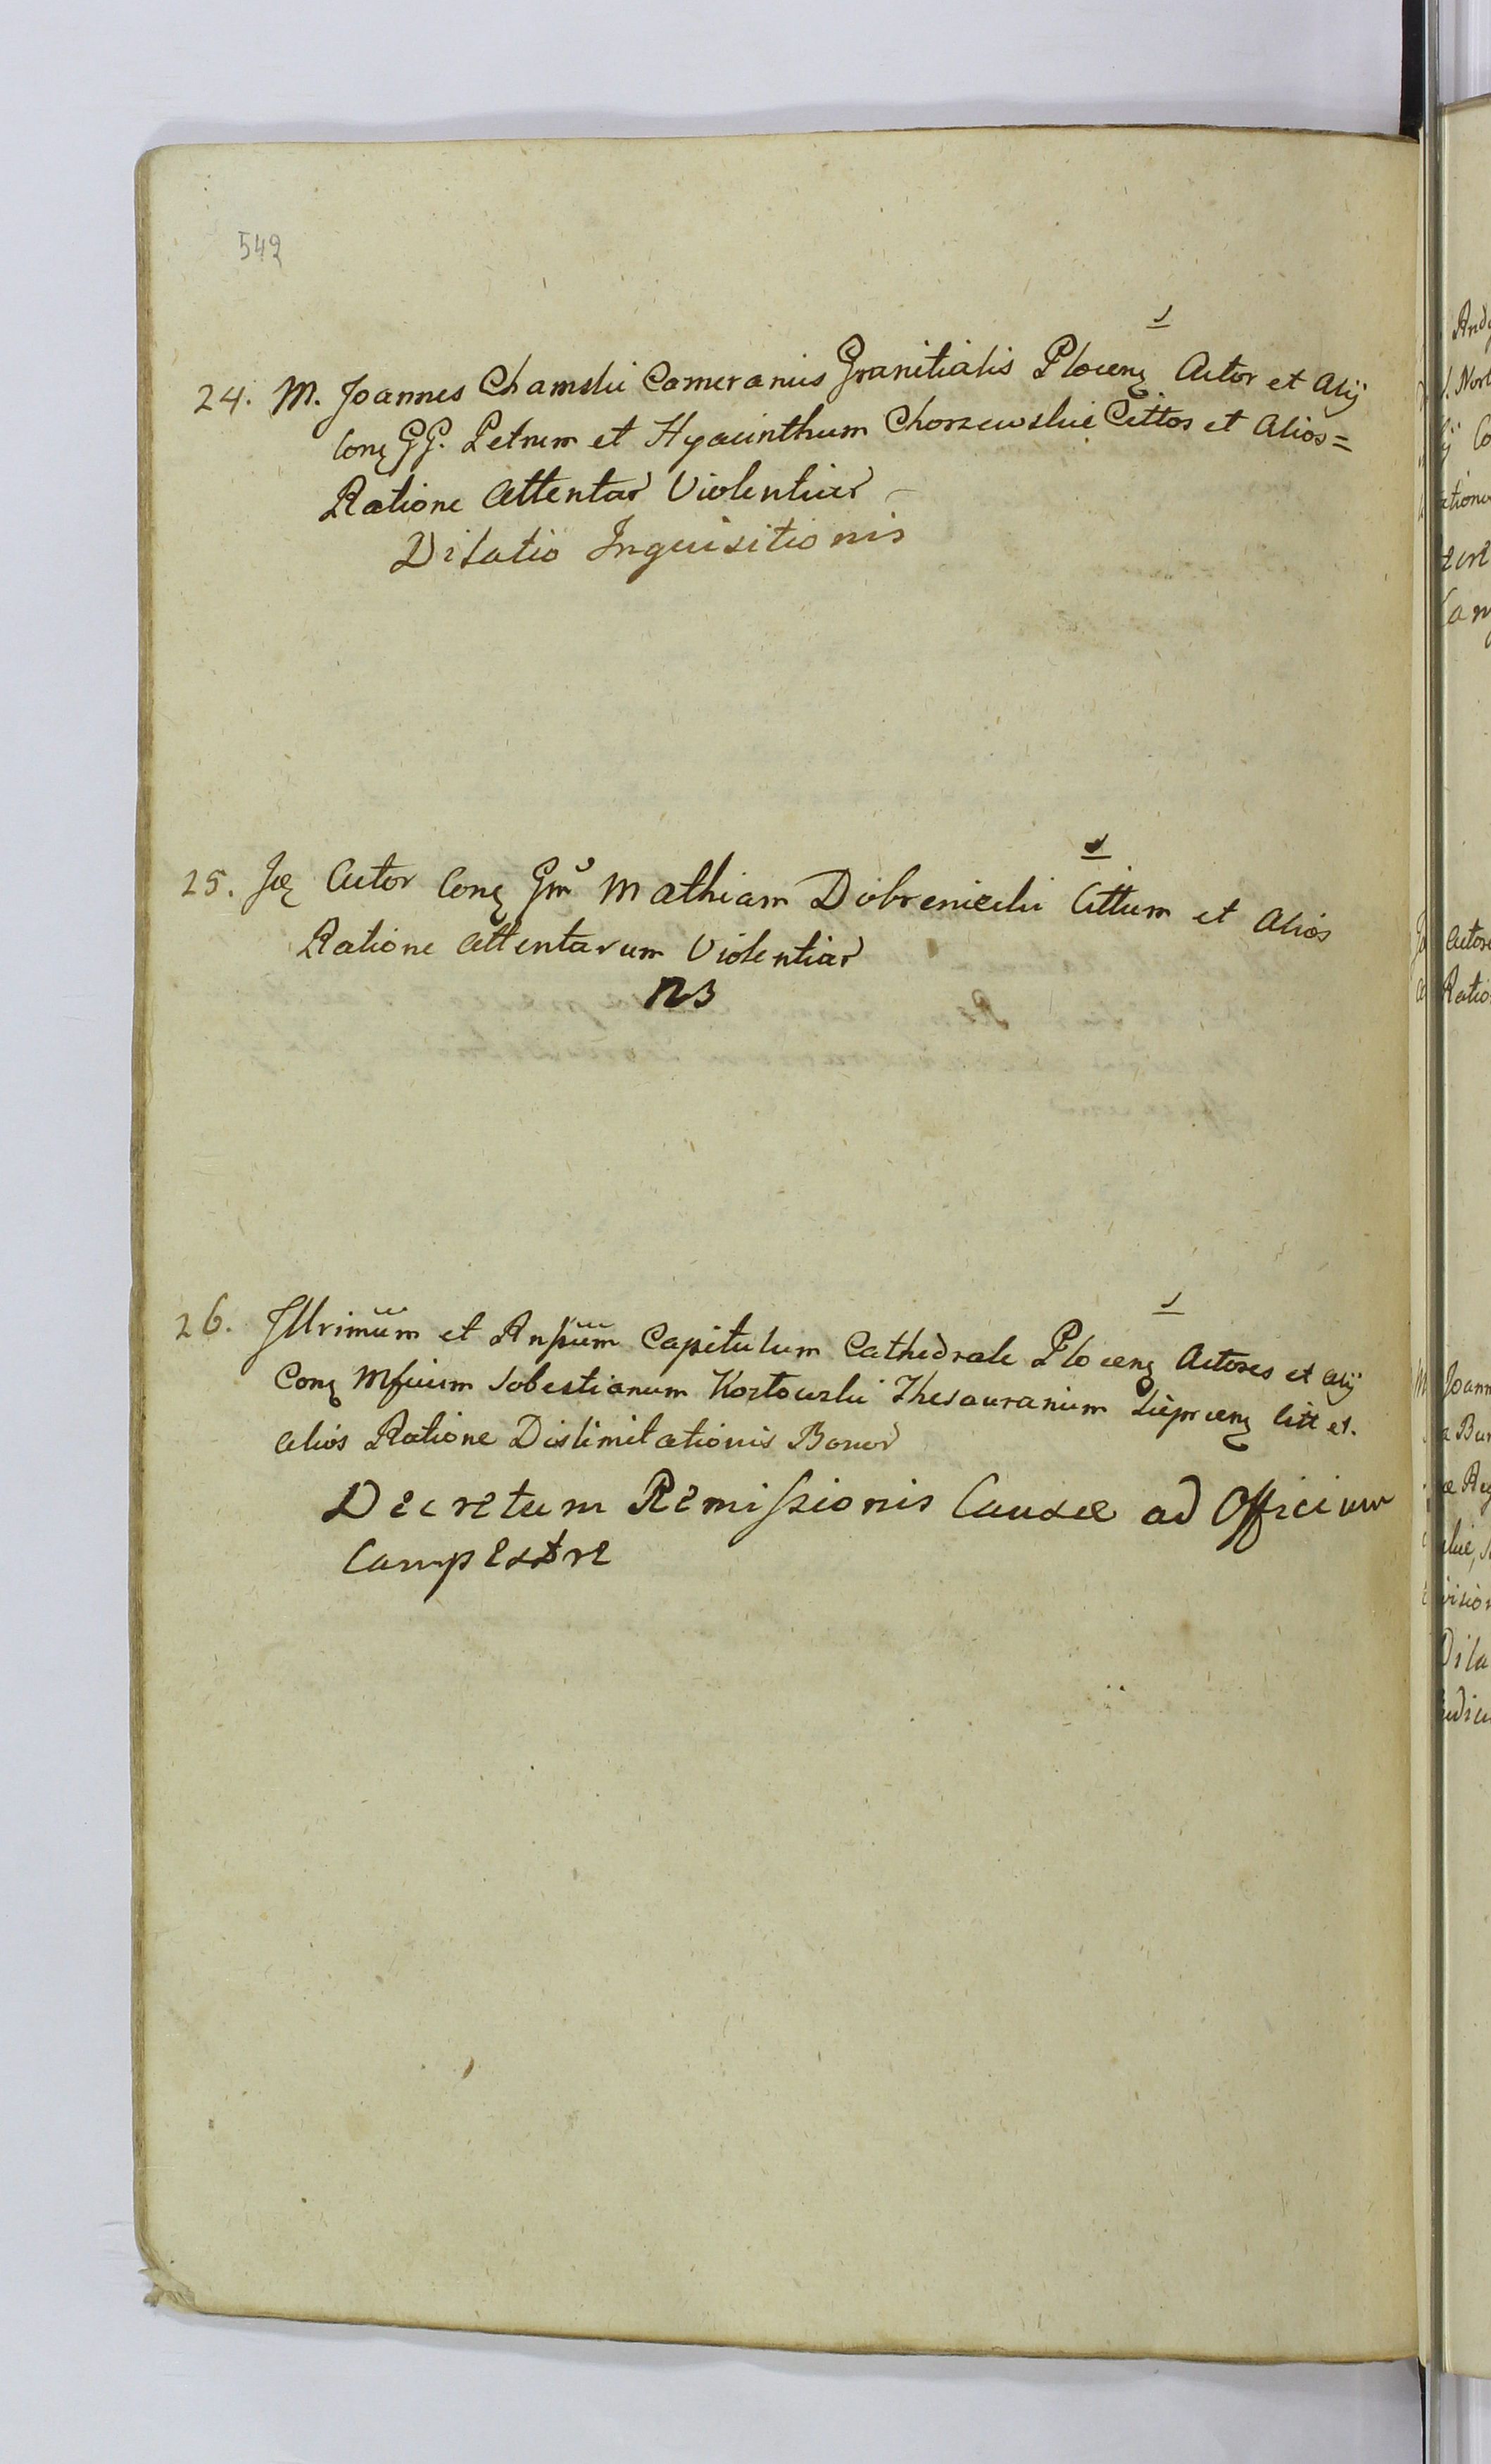 542
24. M. Joannes Chamski Camerarius Granitialis Plocen Actor et Alij
Con GG. Petrum et Hyacinthum Chorzewskie Cittos et Alios =
Ratione Attentar Violentiar
Dilatio Inquisitionis
25. Actor Con Gm Mathiam Dobreniecki Cittum et Alios
Ratione Attentarum Violentiar
ns
26. Illrimum et Rnpum Capitulum Cathedrale Plocen Actores et Alij
Con Mficum Sobestianum Kozłowski Thesaurarium Citt et.
Alios Ratione Dislimitationis Bonor
Decretum Remissionis Causae ad Officium
Campestre